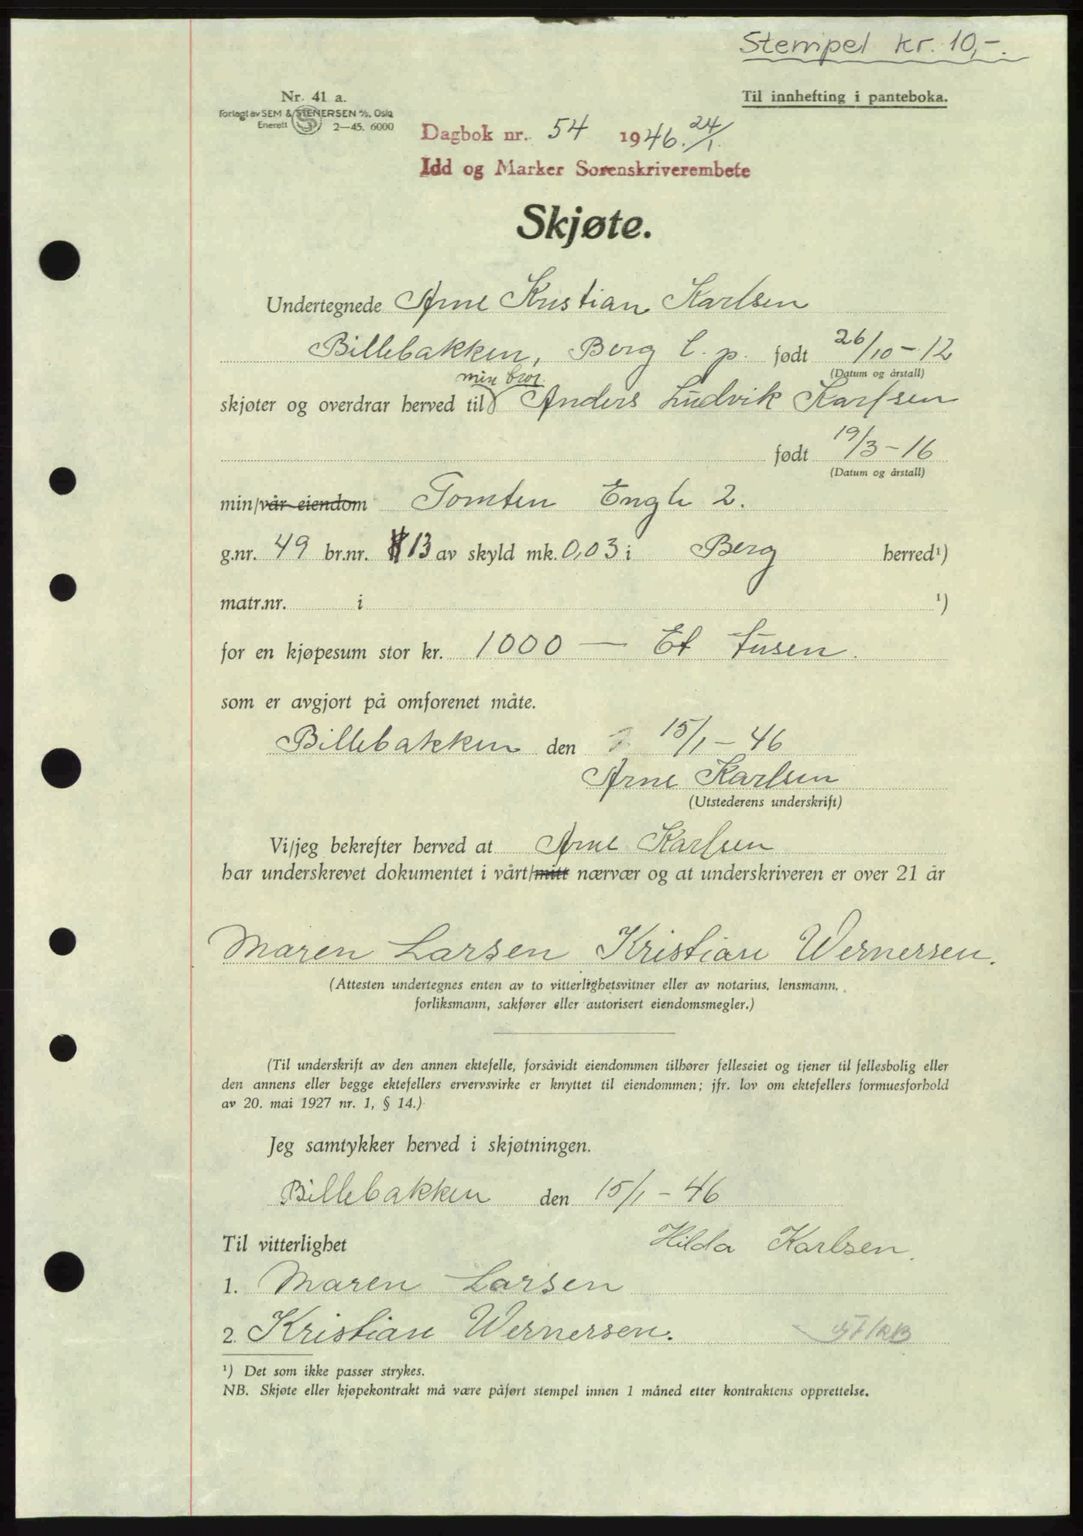 Stempel kr. 10,-.
Nr. 41 a.
Til innhefting i panteboka.
Forlagt av SEM & STENERSEN A/S, Oslo
Enerett 2—45. 6000
Dagbok nr. 54 1946. 24/1.
Idd og Marker Sorenskriverembete
Skjøte.
Undertegnede Arne Kristian Karlsen
Billebakken, Berg l. p. født 26/10 - 12
(Datum og årstall)
min bror
skjøter og overdrar herved til Anders Ludvik Karlsen
født 19/3 - 16
(Datum og årstall)
min/vår eiendom Tomten Engli 2.
g.nr. 49 br.nr. 13 av skyld mk. 0,03 i Berg herred¹)
matr.nr. i ¹)
for en kjøpesum stor kr. 1000 — Et tusen.
som er avgjort på omforenet måte.
Billebakken den 15/1 - 46
Arne Karlsen
(Utstederens underskrift)
Vi/jeg bekrefter herved at Arne Karlsen
har underskrevet dokumentet i vårt/mitt nærvær og at underskriveren er over 21 år
Maren Larsen Kristian Wernersen.
(Attesten undertegnes enten av to vitterlighetsvitner eller av notarius, lensmann,
forliksmann, sakfører eller autorisert eiendomsmegler.)
(Til underskrift av den annen ektefelle, forsåvidt eiendommen tilhører felleseiet og tjener til fellesbolig eller
den annens eller begge ektefellers ervervsvirke er knyttet til eiendommen; jfr. lov om ektefellers formuesforhold
av 20. mai 1927 nr. 1, § 14.)
Jeg samtykker herved i skjøtningen.
Billebakken den 15/1 - 46
Til vitterlighet Hilda Karlsen.
1. Maren Larsen
2. Kristian Wernersen.
¹) Det som ikke passer strykes.
NB. Skjøte eller kjøpekontrakt må være påført stempel innen 1 måned etter kontraktens opprettelse.